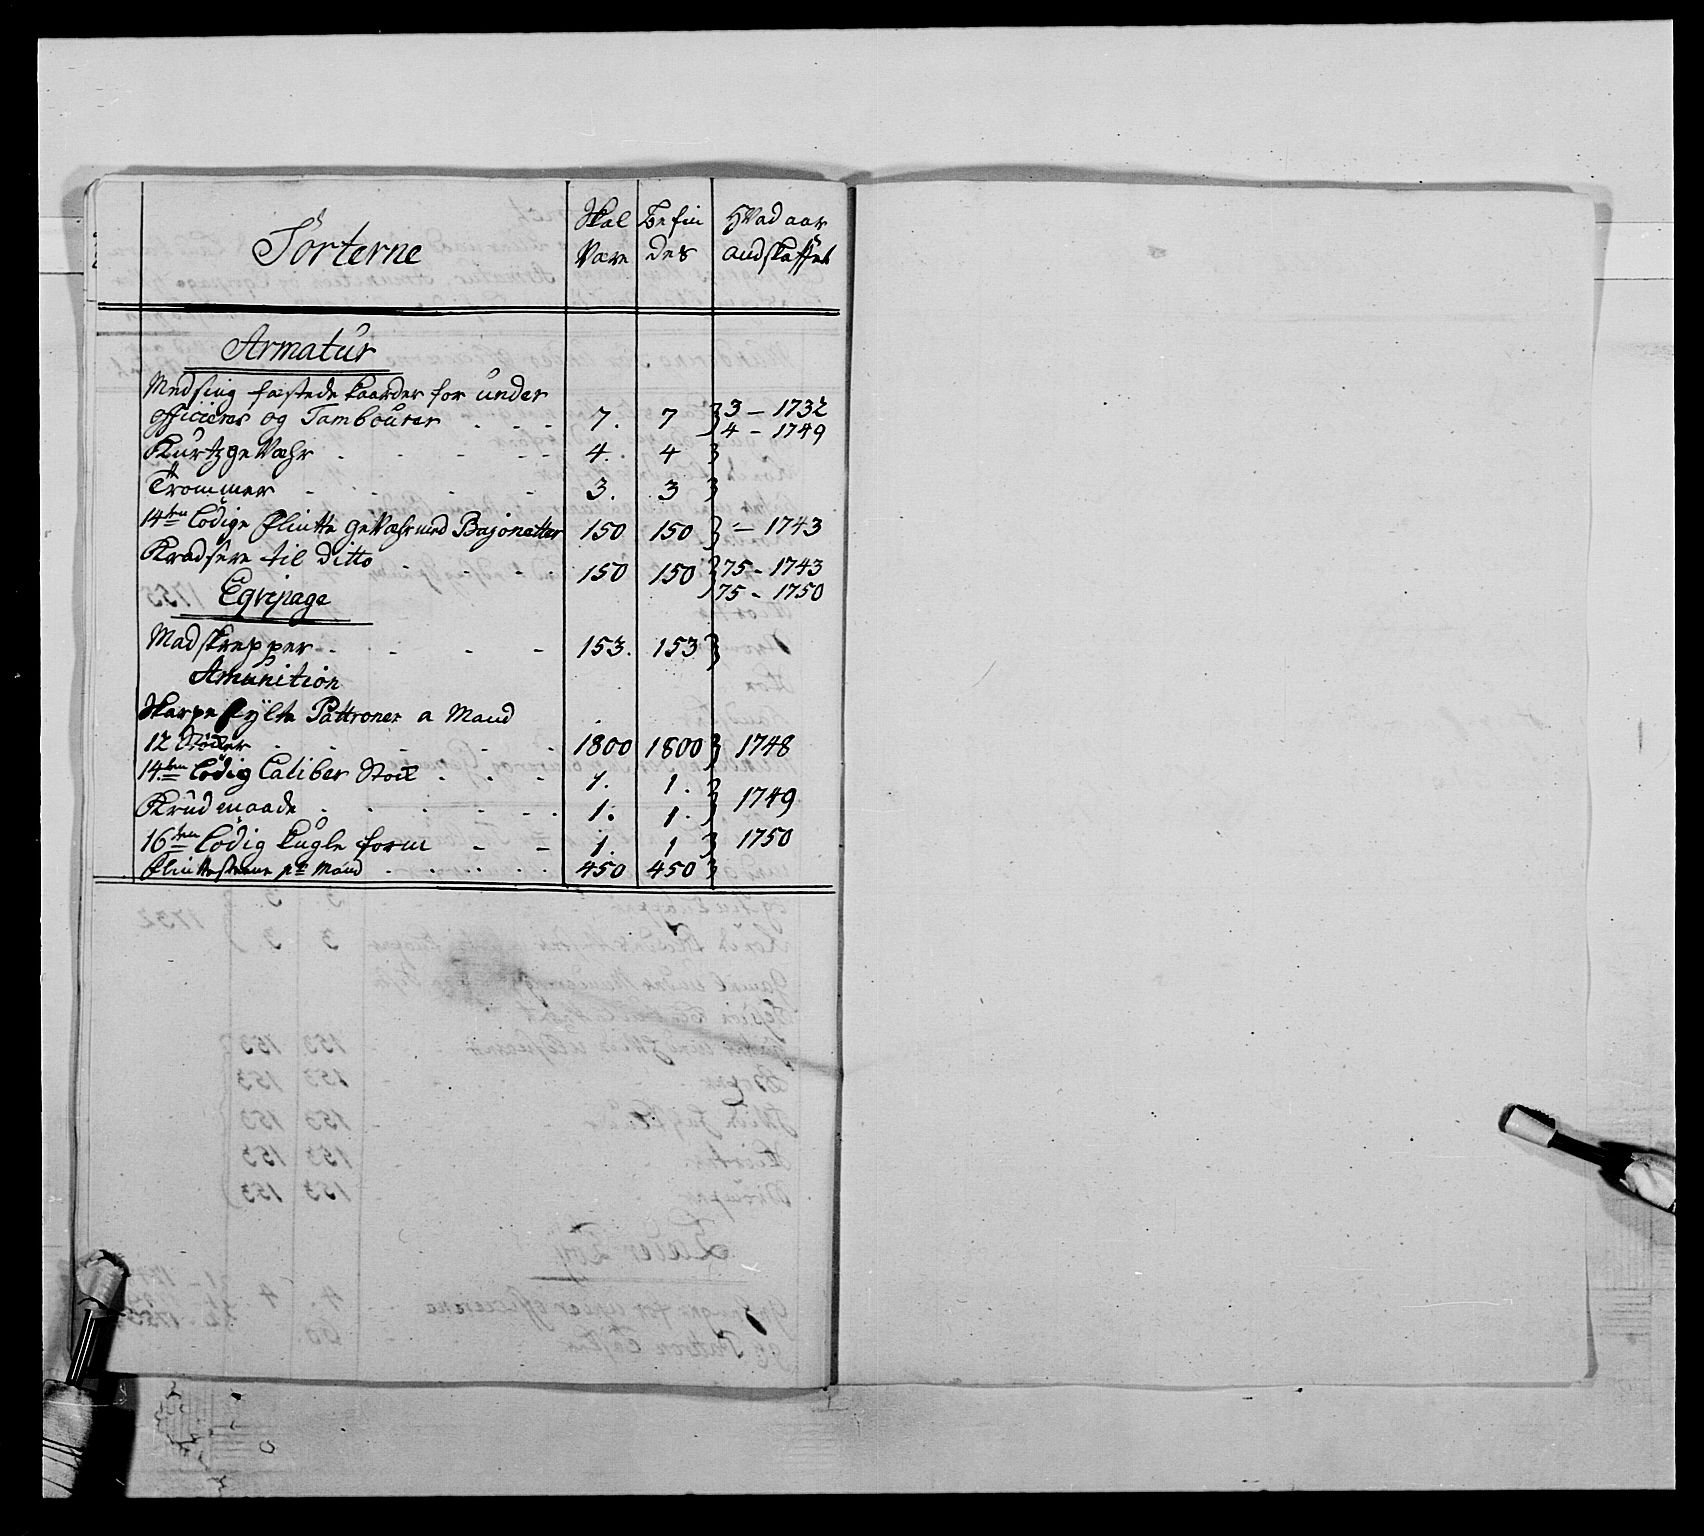 Sorterne | Skal Være | Befindes | Hvad aar andskaffet
Armatur
Medsing fæstede kaarder for under
officierer og Tambourer . . . | 7. | 7 | 3 – 1732
4 – 1749
KurtzgeVæhr . - - - - | 4. | 4
Trommer - - - - | 3. | 3
14ten Lodige Flintte geVæhr med Bajonetter | 150 | 150 | – 1743
Kradsere til ditto . . . . | 150 | 150 | 75 – 1743
75 – 1750
Eqvipage
Madskrepper - - - - | 153. | 153
Amunition
Skarpe fylte Pattroner a Mand
12 Stöcker . - - - - | 1800 | 1800 | 1748
14ten Lödig Caliber Stock . . . | 1. | 1.
Krudmaade . . . . . | 1. | 1. | 1749
16ten Lödig Kugle form - - | 1. | 1 | 1750
Flinttesteene pr Mand . . . . . | 450 | 450